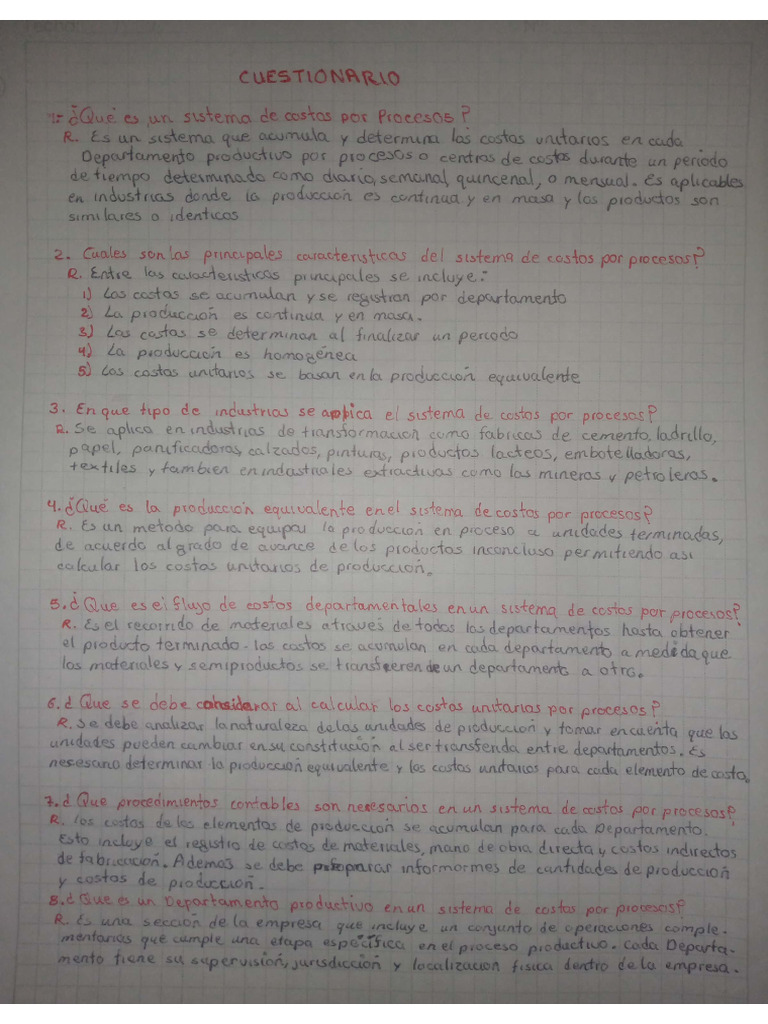 CUESTIONARIO
1.- ¿Qué es un sistema de costos por Procesos?
R. Es un sistema que acumula y determina los costos unitarios en cada
Departamento productivo por procesos o centros de costos durante un periodo
de tiempo determinado como diario, semanal, quincenal, o mensual. Es aplicables
en industrias donde la producción es continua y en masa y los productos son
similares o identicos
2. Cuales son las principales caracteristicas del sistema de costos por procesos?
R. Entre las caracteristicas principales se incluye:
1) Los costos se acumulan y se registran por departamento
2) La producción es continua y en masa.
3) Los costos se determinan al finalizar un periodo
4) La producción es homogénea
5) Los costos unitarios se basan en la producción equivalente
3. En que tipo de industrias se aplica el sistema de costos por procesos?
R. Se aplica en industrias de transformacion como fabricas de cemento, ladrillo,
papel, panificadoras, calzados, pinturas, productos lacteos, embotelladoras,
textiles y tambien en industriales extractivas como las mineras y petroleras.
4. ¿Qué es la producción equivalente en el sistema de costos por procesos?
R. Es un metodo para equipar la producción en proceso a unidades terminadas,
de acuerdo al grado de avance de los productos inconcluso permitiendo asi
calcular los costos unitarios de producción.
5. ¿Que es el flujo de costos departamentales en un sistema de costos por procesos?
R. Es el recorrido de materiales atraves de todos los departamentos hasta obtener
el producto terminado. los costos se acumulan en cada departamento a medida que
los materiales y semiproductos se transfieren de un departamento a otro.
6. ¿ Que se debe considerar al calcular los costos unitarios por procesos?
R. Se debe analizar la naturaleza de las unidades de producción y tomar en cuenta que las
unidades pueden cambiar en su constitución al ser transferida entre departamentos. Es
necesario determinar la producción equivalente y los costos unitarios para cada elemento de costo.
7. ¿ Que procedimientos contables son necesarios en un sistema de costos por procesos?
R. los costos de los elementos de producción se acumulan para cada Departamento.
Esto incluye el registro de costos de materiales, mano de obra directa y costos indirectos
de fabricación. Además se debe preparar informormes de cantidades de producción
y costos de producción.
8. ¿ Que es un Departamento productivo en un sistema de costos por procesos?
R. Es una sección de la empresa que incluye un conjunto de operaciones comple.
mentarias que cumple una etapa específica en el proceso productivo. cada Departa-
mento tiene su supervisión, jurisdicción y localización fisica dentro de la empresa.